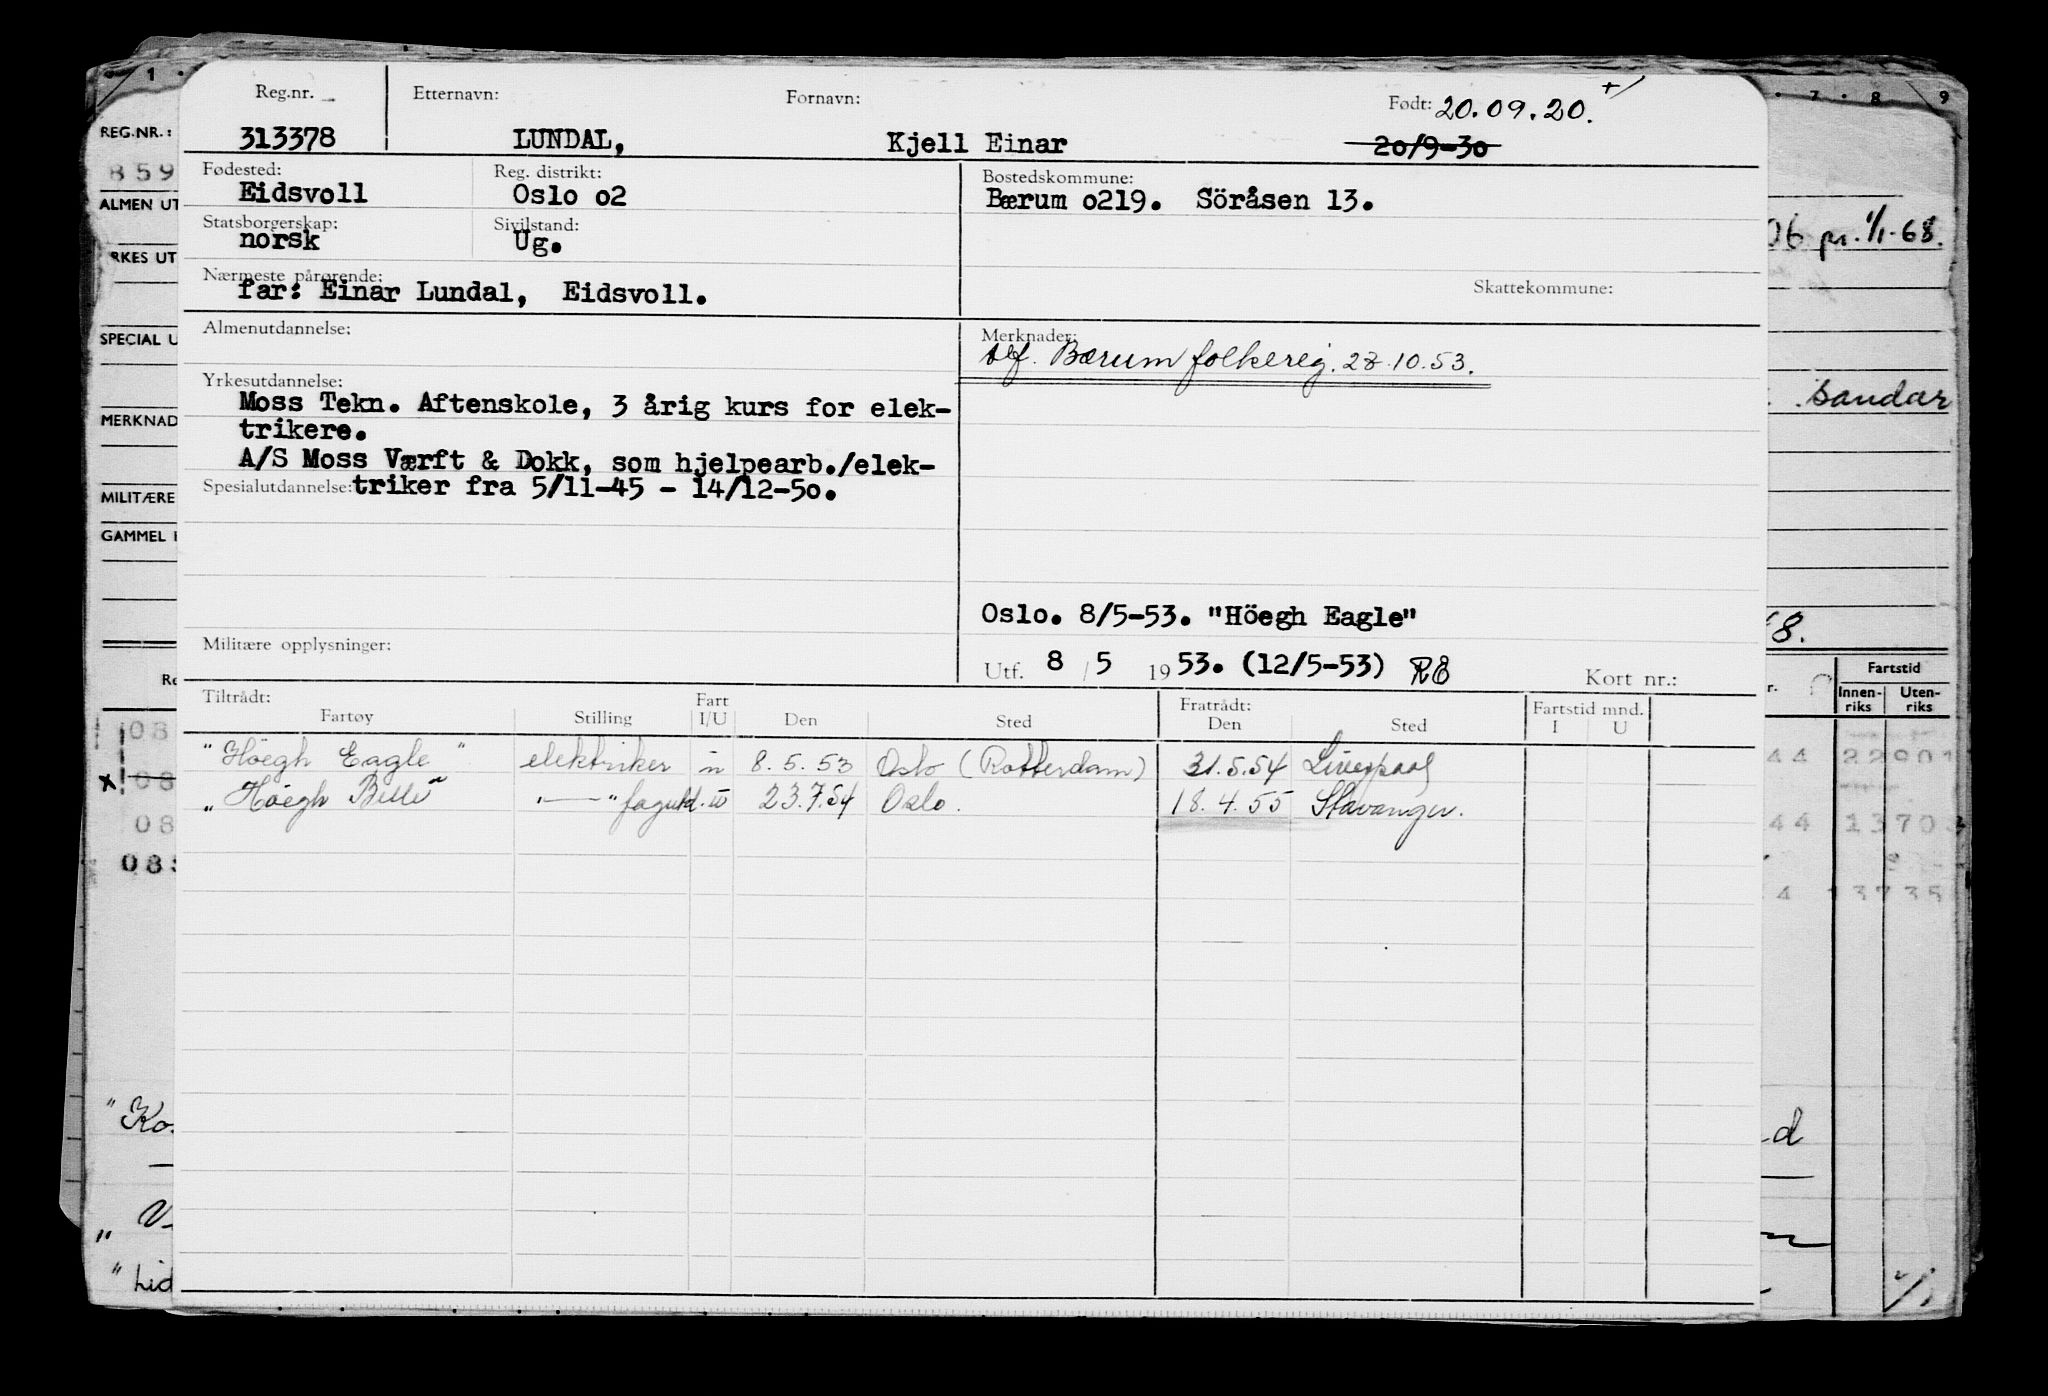 Reg.nr. Etternavn: Fornavn: Født: 20.09.20.
313378 LUNDAL, Kjell Einar 20/9-30
Fødested: Reg. distrikt: Bostedskommune:
Eidsvoll Oslo o2 Bærum o219. Söråsen 13.
Statsborgerskap: Sivilstand:
norsk Ug.
Nærmeste pårørende: Skattekommune:
far: Einar Lundal, Eidsvoll.
Almenutdannelse: Merknader:
Bærum folkereg. 28.10.53.
Yrkesutdannelse:
Moss Tekn. Aftenskole, 3 årig kurs for elek-
trikere.
A/S Moss Værft & Dokk, som hjelpearb./elek-
Spesialutdannelse: triker fra 5/11-45 - 14/12-50.
Oslo. 8/5-53. "Höegh Eagle"
Militære opplysninger:
Utf. 8 / 5 1953. (12/5-53) Kort nr.:
Tiltrådt: Fart Fratrådt: Fartstid mnd.
Fartøy Stilling I/U Den Sted Den Sted I U
"Höegh Eagle" elektriker u 8.5.53 Oslo (Rotterdam) 31.5.54 Liverpool
"Höegh Belle" —"— u 23.7.54 Oslo. 18.4.55 Stavanger.
1 7 8 9
REG.NR.:
859
ALMEN UT
RKES UT
SPECIAL U
MERKNAD
MILITÆRE
GAMMEL
06 pr. 1/1-68.
sandar
8.
Fartstid
Innen-riks Uten-riks
08
08
08
44 22901
44 1370
4 13735
"Ko
"Lid